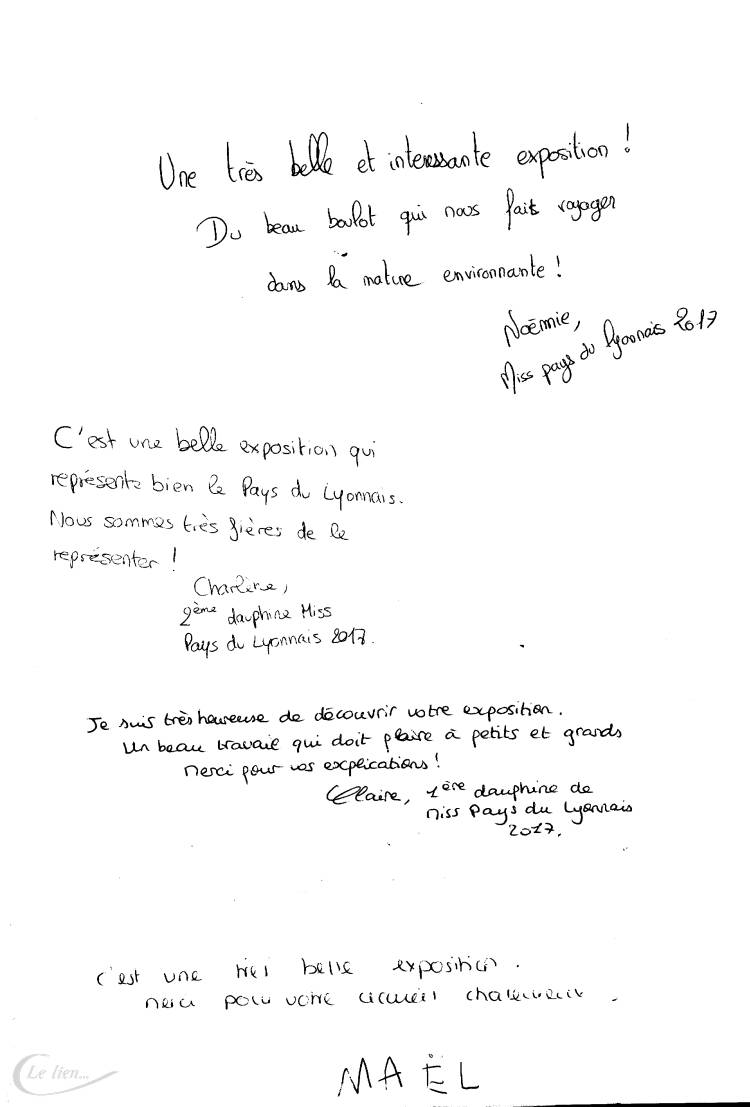 Une très belle et interessante exposition !
Du beau boulot qui nous fait voyager
dans la nature environnante !
Noëmie,
Miss pays du Lyonnais 2017
C'est une belle exposition qui
représente bien le Pays du Lyonnais.
Nous sommes très fières de le
représenter !
Charlène,
2ème dauphine Miss
Pays du Lyonnais 2017.
Je suis très heureuse de découvrir votre exposition.
Un beau travail qui doit plaire à petits et grands
Merci pour vos explications !
Claire, 1ère dauphine de
Miss Pays du Lyonnais
2017.
C'est une très belle exposition.
Merci pour votre accueil chaleureux.
MAËL
Le lien...